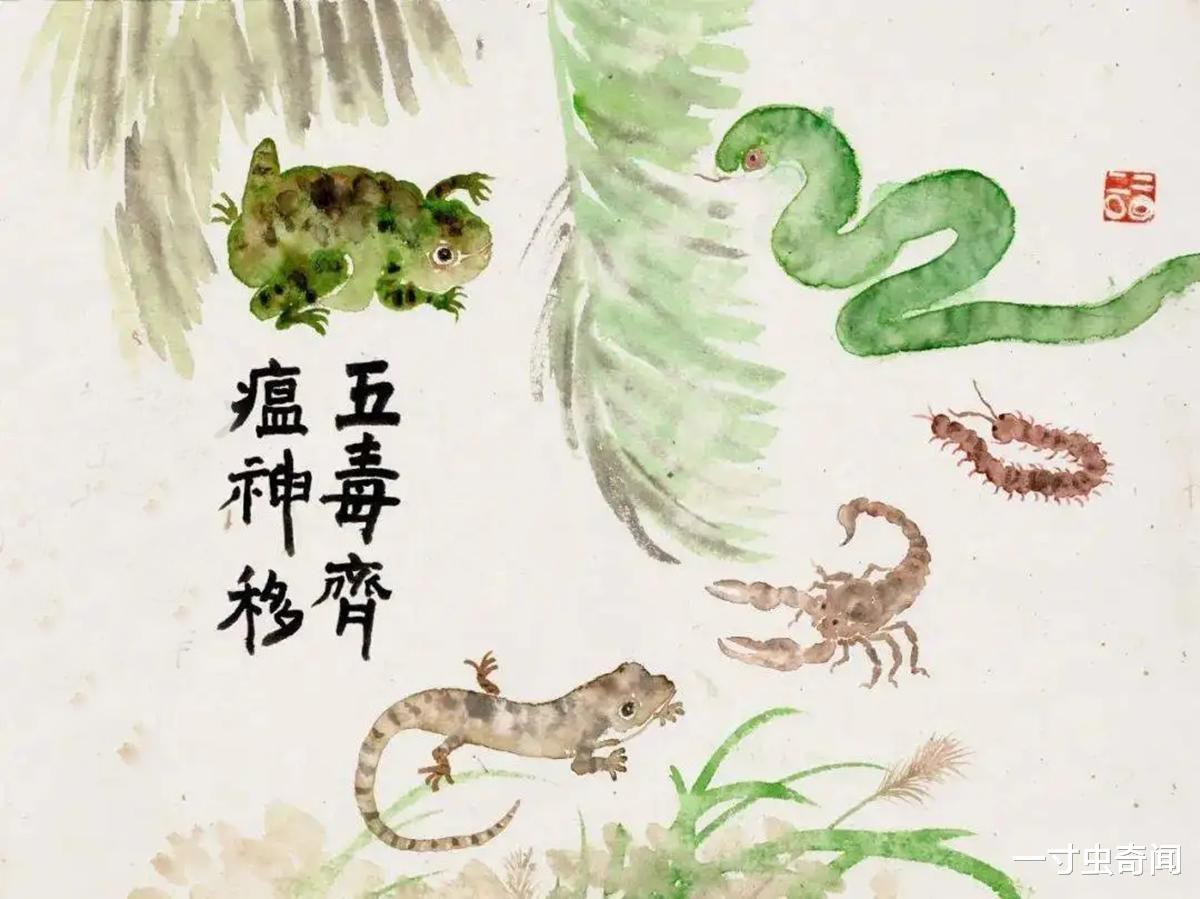 五毒齊
瘟神移
一寸虫奇闻